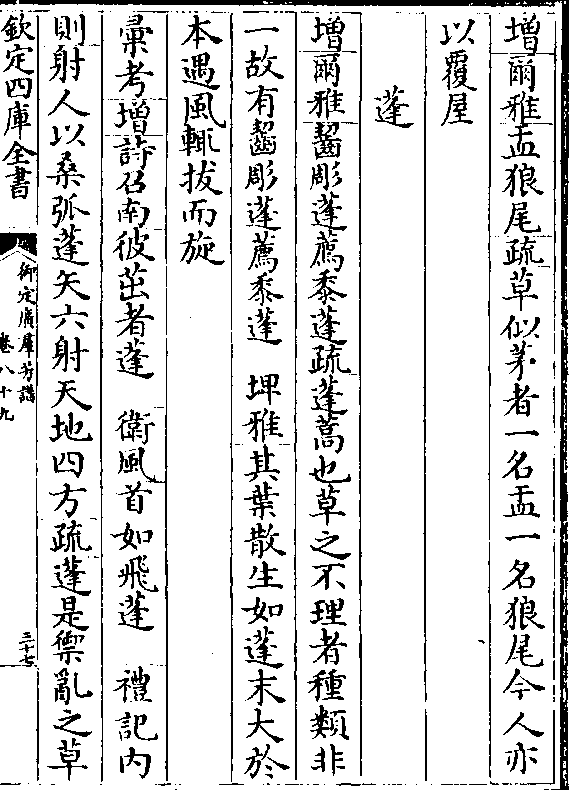 增爾雅盂狼尾疏草似茅者一名盂一名狼尾今人亦
以覆屋
蓬
增爾雅齧彫蓬薦黍蓬疏蓬蒿也草之不理者種類非
一故有齧彫蓬薦黍蓬 埤雅其葉散生如蓬末大於
本遇風輒拔而旋
彚考增詩召南彼茁者蓬 衛風首如飛蓬 禮記内
則射人以桑弧蓬矢六射天地四方疏蓬是禦亂之草
欽定四庫全書
御定廣羣芳譜
卷八十九
三十七